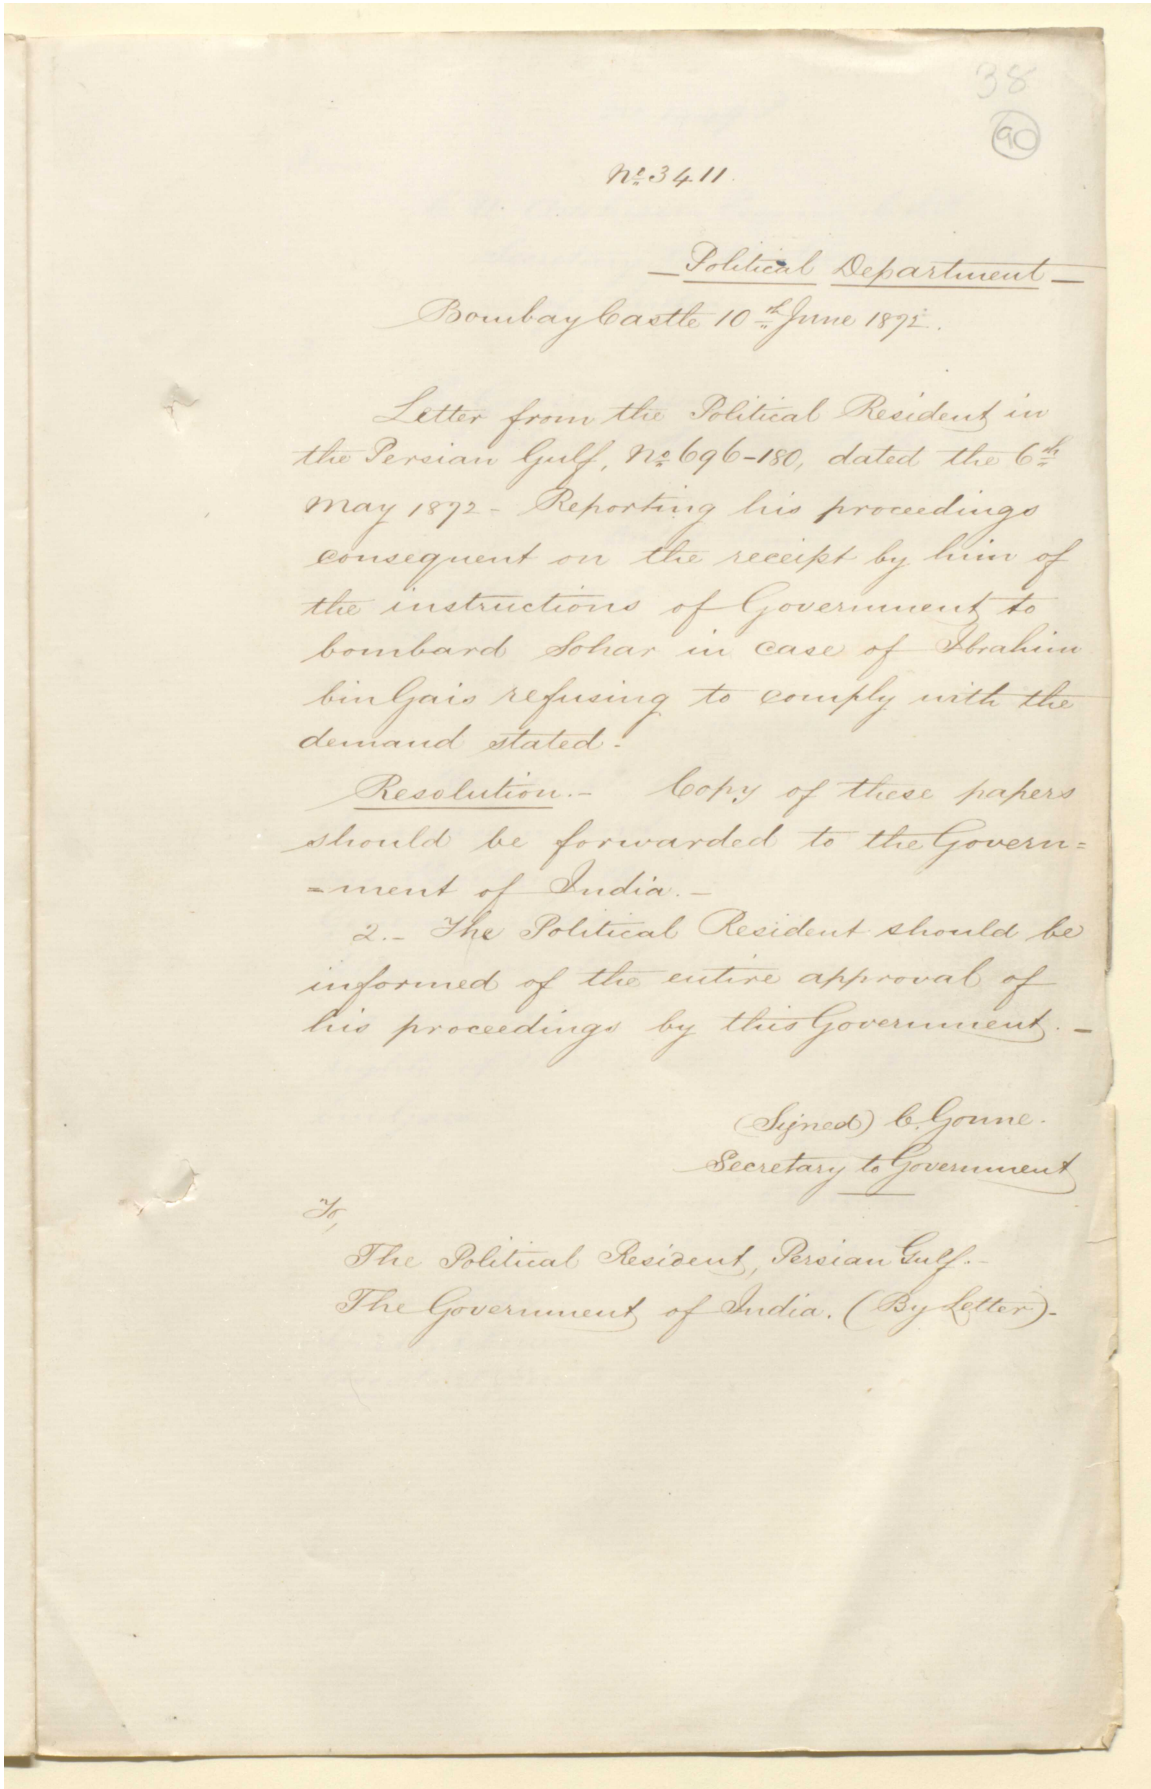 38
90
No 3411.
Political Department
Bombay Castle 10th June 1872.
Letter from the Political Resident in
the Persian Gulf, No 696-180, dated the 6th
May 1872 - Reporting his proceedings
consequent on the receipt by him of
the instructions of Government to
bombard Sohar in case of Ibrahim
bin Gais refusing to comply with the
demand stated.
Resolution.- Copy of these papers
should be forwarded to the Govern=
=ment of India.-
2.- The Political Resident should be
informed of the entire approval of
his proceedings by this Government.-
(Signed) C. Gonne.
Secretary to Government
To,
The Political Resident, Persian Gulf.-
The Government of India. (By Letter)-